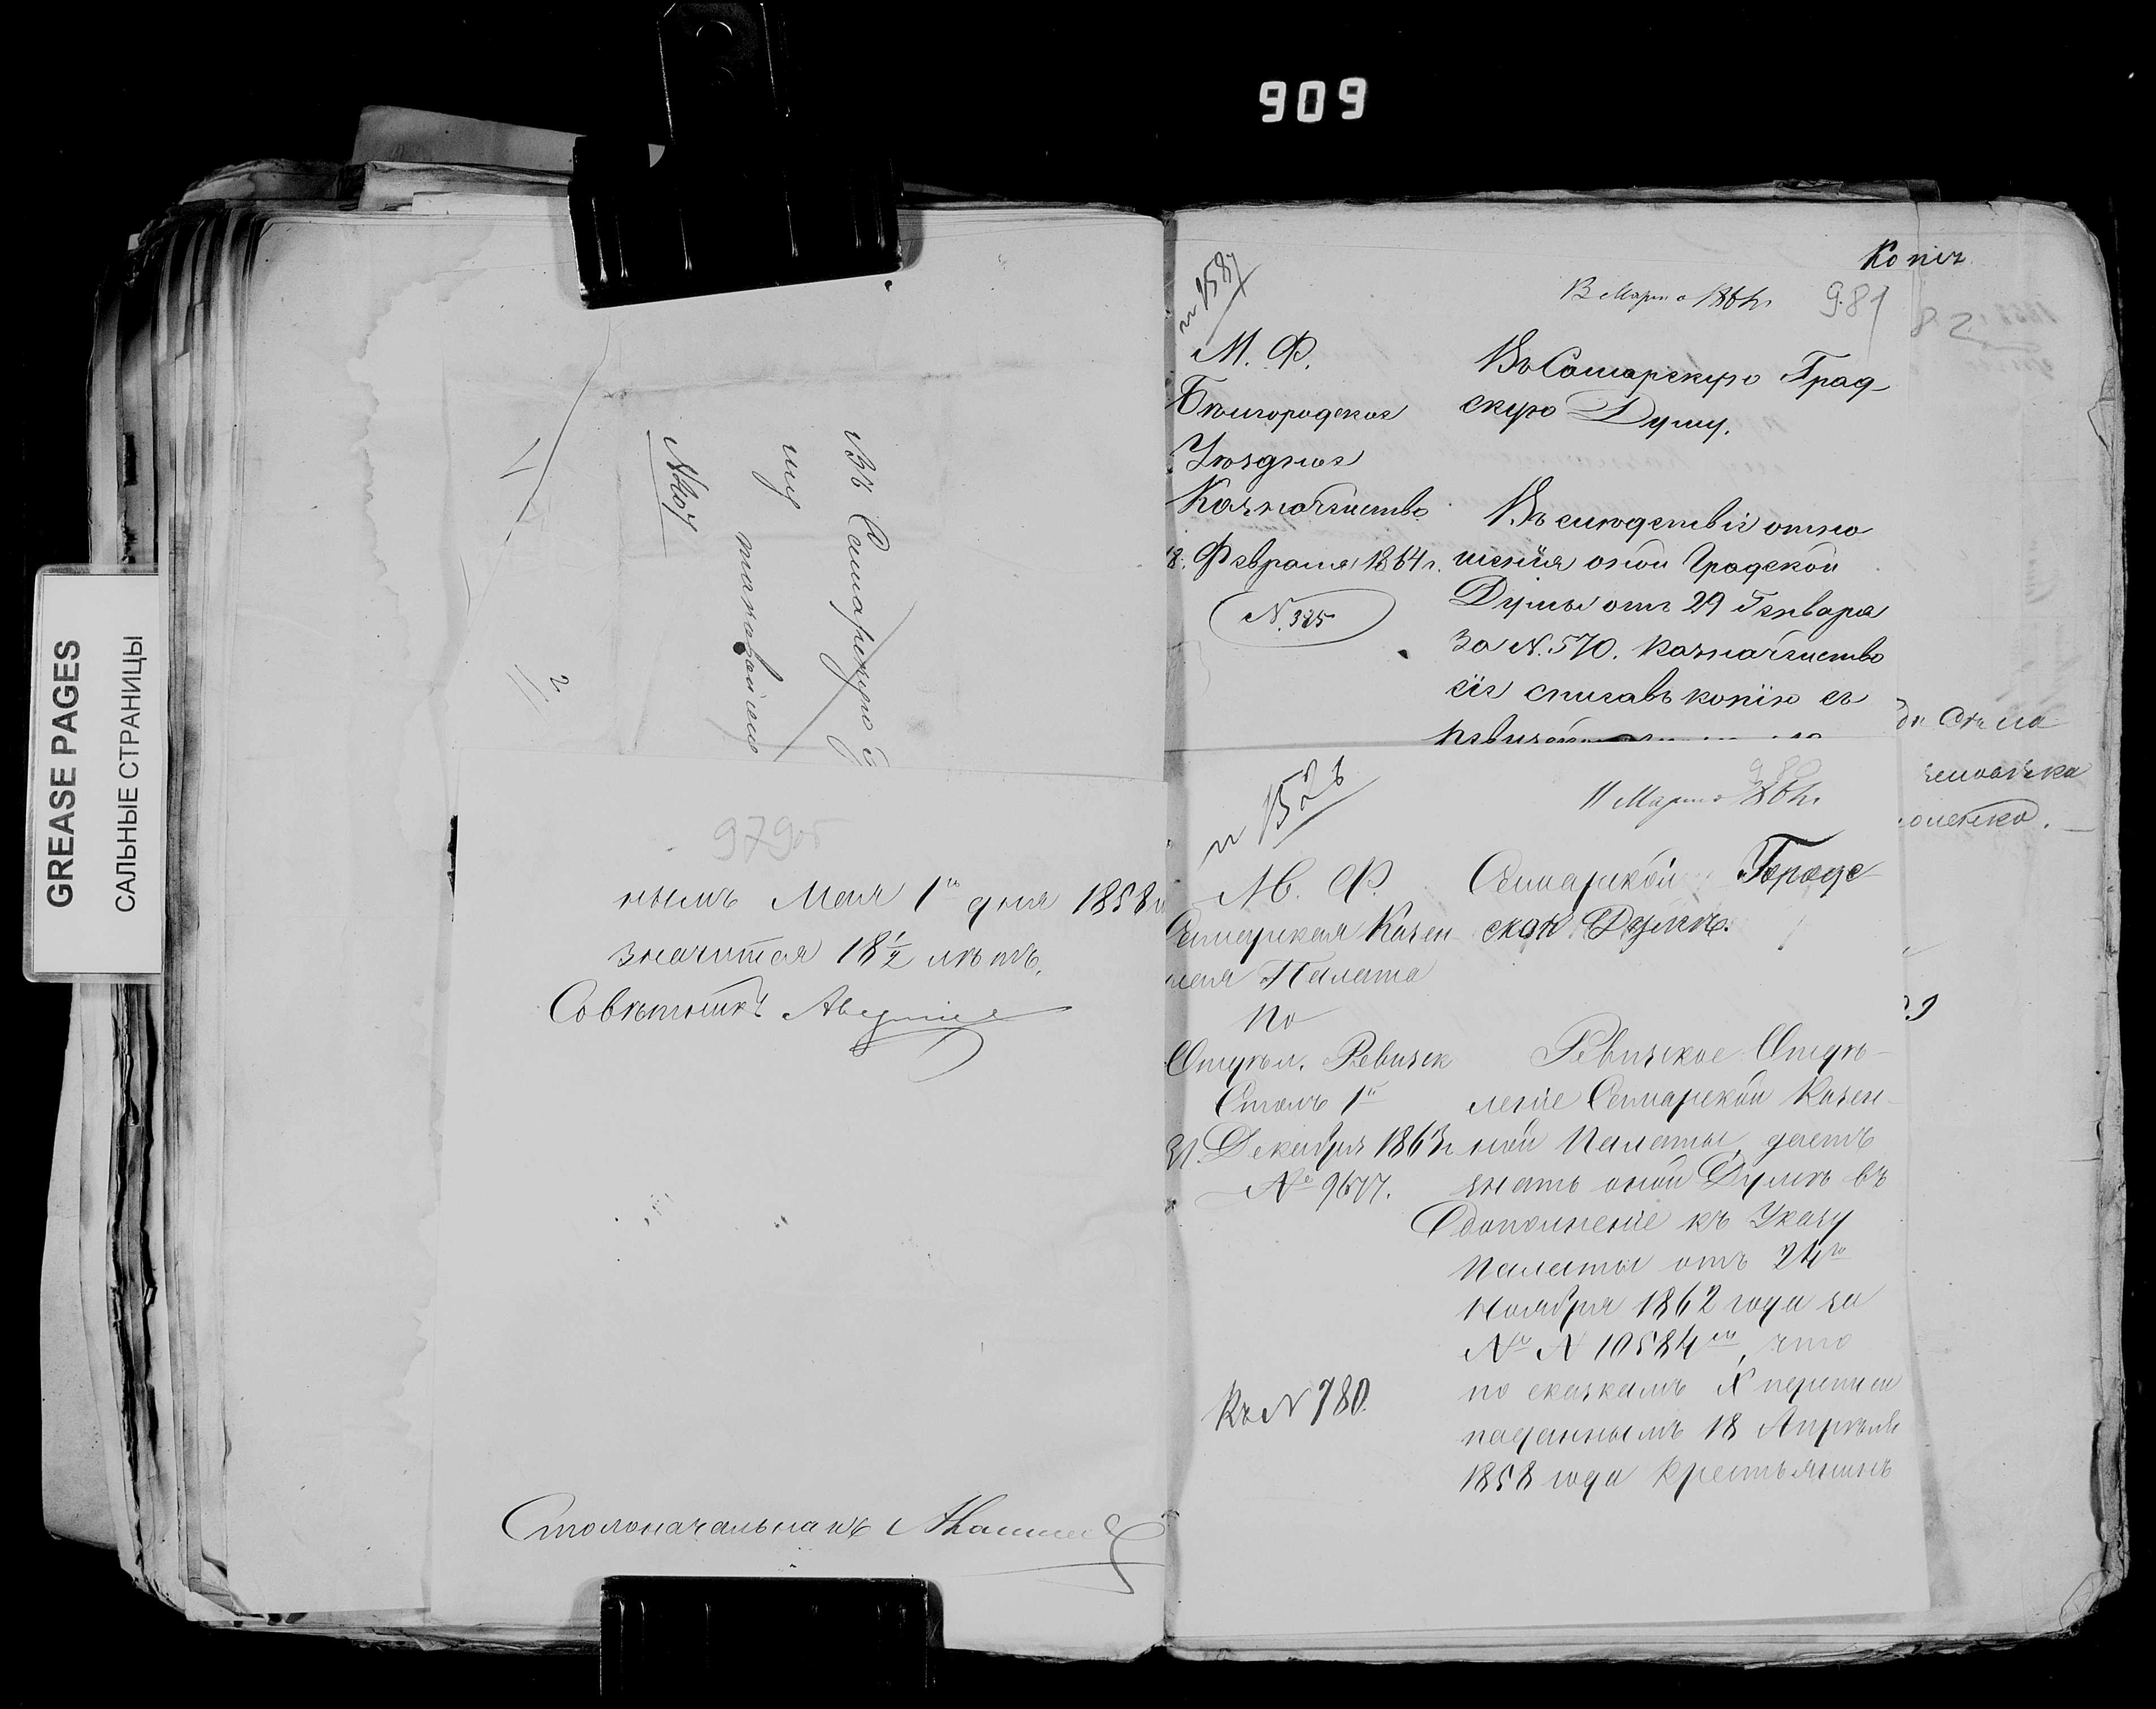 909
GREASE PAGES
САЛЬНЫЕ СТРАНИЦЫ
Въ Самарскую
№ 407
979 об
нымъ Мая 1го дня 1858 г
значится 18 1/2 лѣтъ.
Совѣтникъ
Столоначальникъ
Копія
13 Марта 1864 г.
981
82
М. Ф.
Бѣлгородское
Уѣздное
Казначейство
18. Февраля 1864 г.
N. 325
Въ Самарскую Град-
скую Думу.
Въ слѣдствіе отно
шенія оной Градской
Думы отъ 29 Генваря
за N. 570. Казначейство
сіе списавъ копію съ
980
11 Марта 1864 г.
М. Ф.
Самарская Казен
ная Палата
По
Отдѣл. Ревизск
Столъ 1й
31. Декабря 1863 г
№ 9677.
Къ N 780.
Самарской Городс-
кой Думѣ.
Ревизское Отдѣ-
леніе Самарской Казен-
ной Палаты, даетъ
знать оной Думѣ въ
дополненіе къ Указу
Палаты отъ 24го
Ноября 1862 года за
№ 10584м, что
по сказкамъ X переписи
поданнымъ 18 Апрѣля
1858 года крестьянинъ